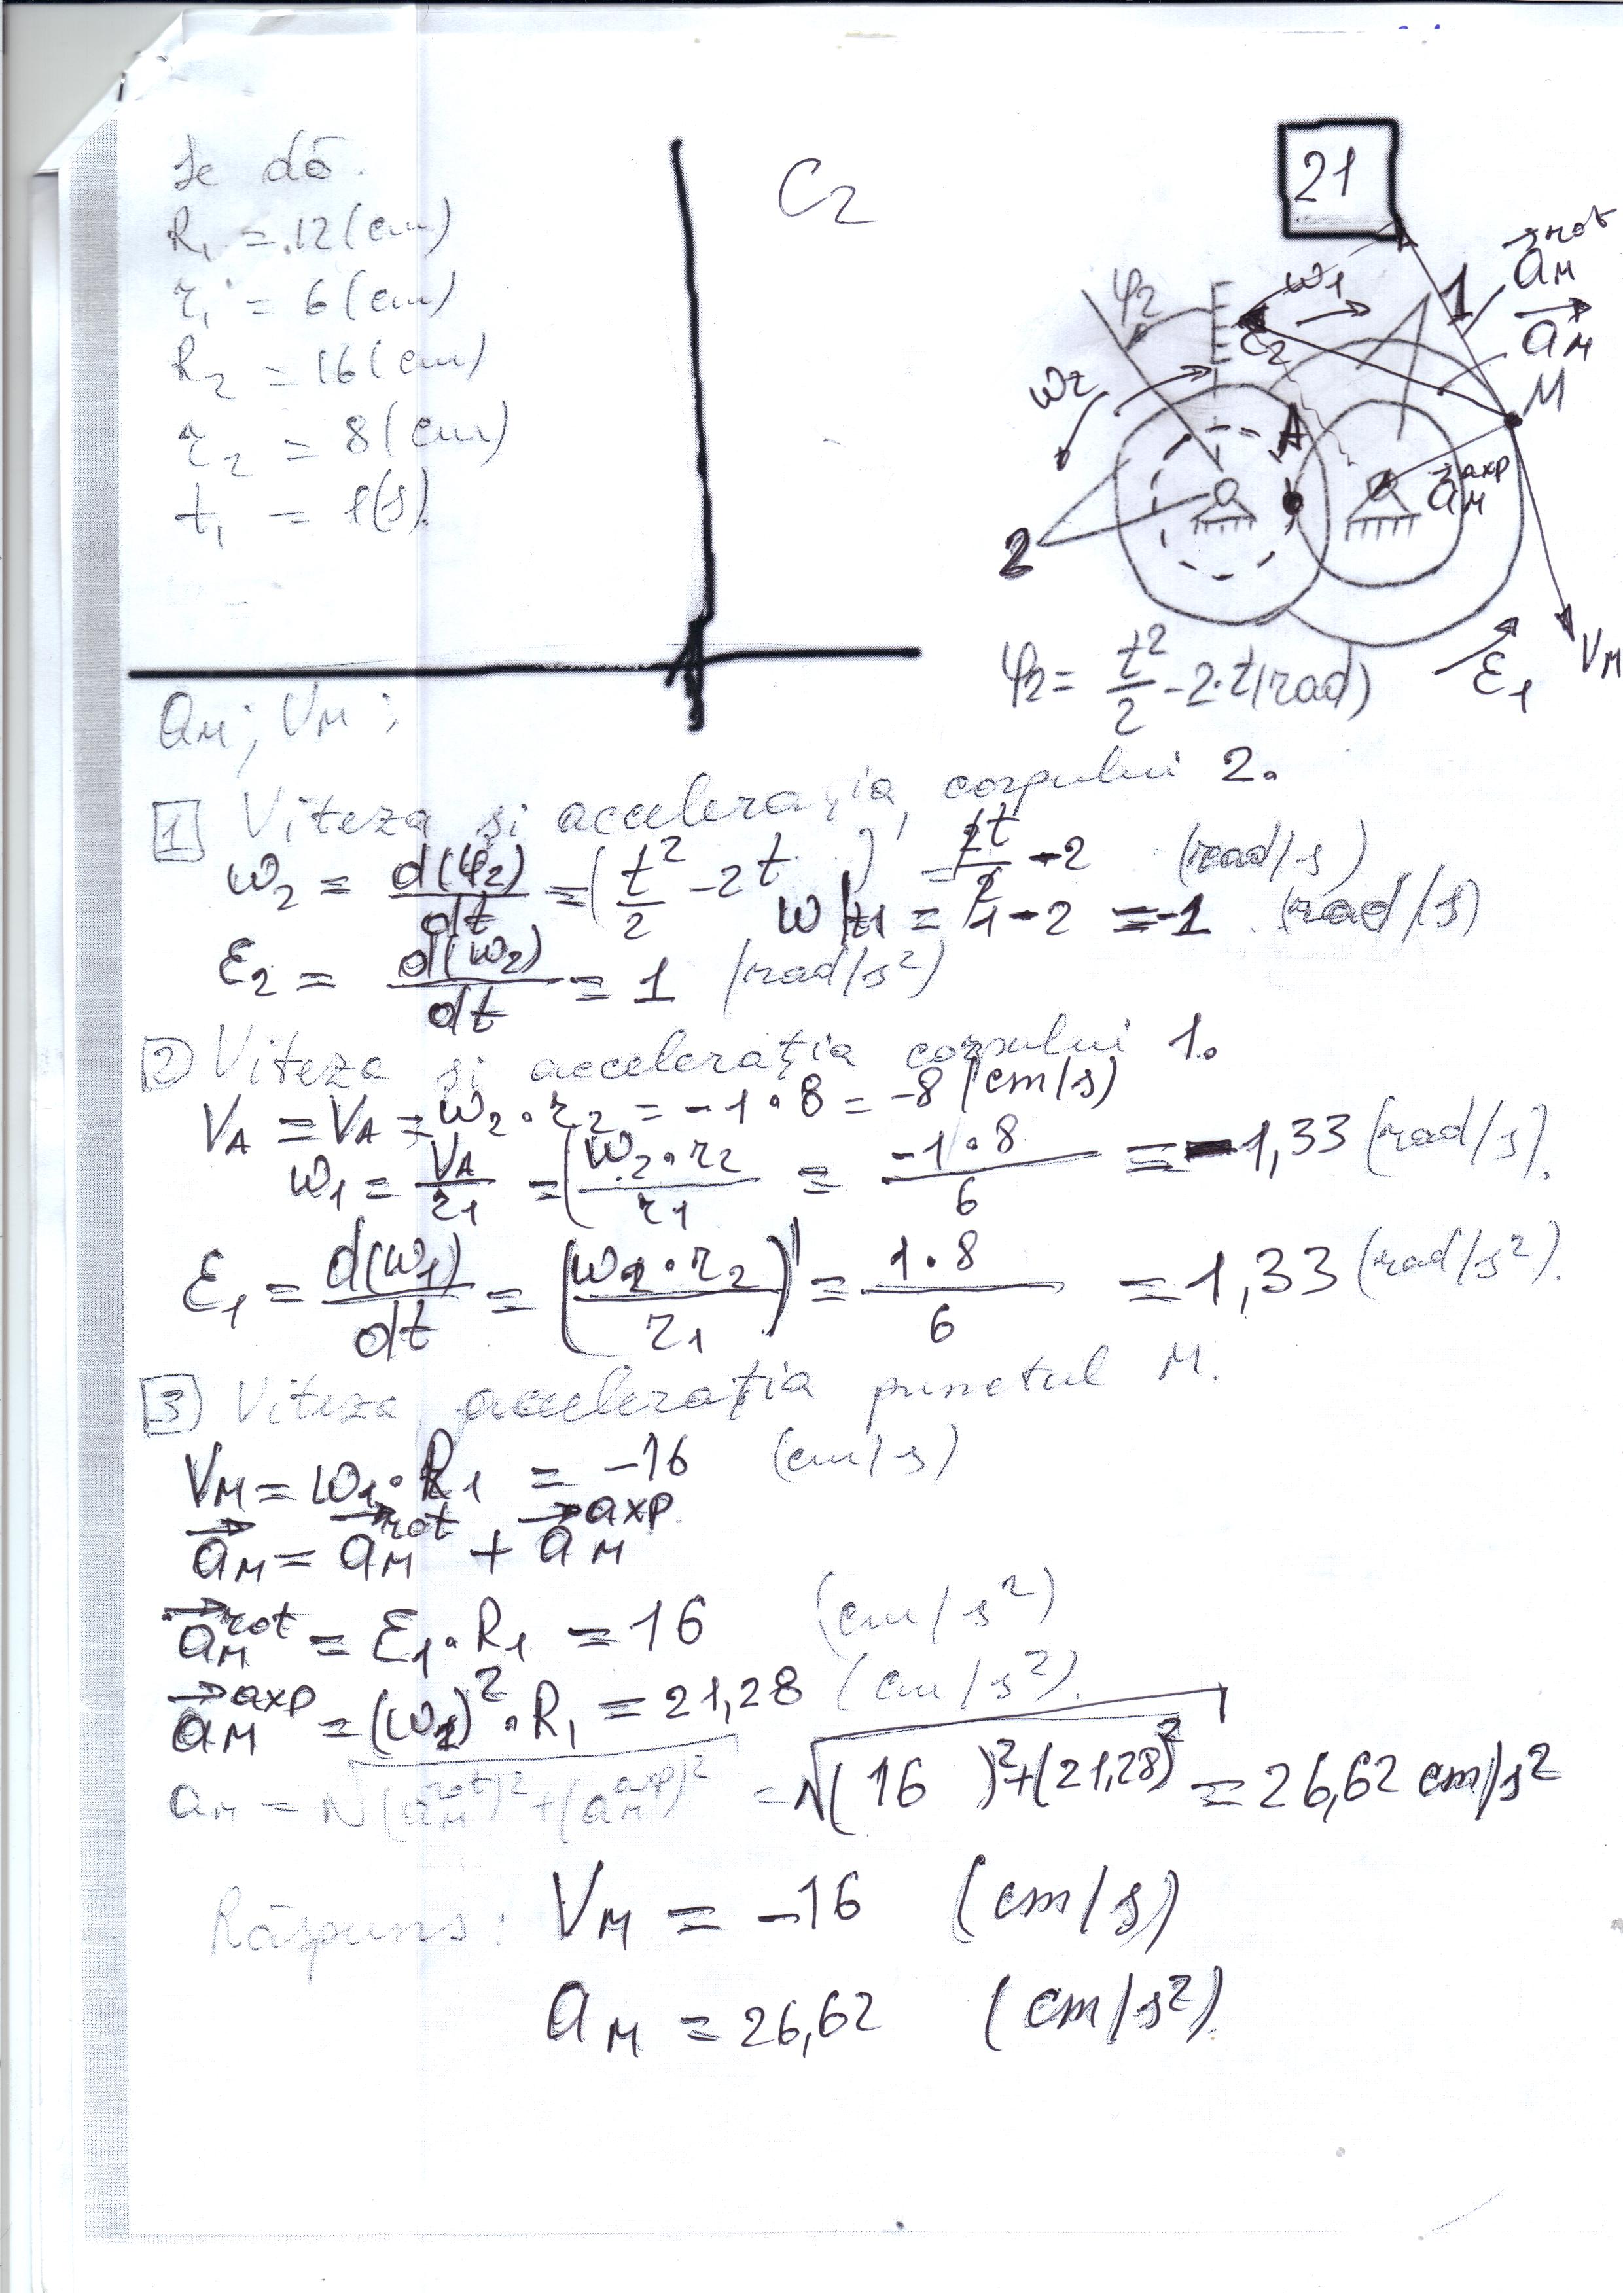 Se dă.
R₁ = 12 (cm)
r₁ = 6 (cm)
R₂ = 16 (cm)
r₂ = 8 (cm)
t₁ = 1(s).
C2
21
φ₂
ω₁
1
a⃗ᴍ^rot
a⃗ᴍ
ε₂
M
ω₂
A
a⃗ᴍ^axp
2
Vᴍ
ε₁
φ₂ = t²/2 - 2·t (rad)
aᴍ; Vᴍ;
1 Viteza și accelerația, corpului 2.
ω₂ = d(φ₂)/dt = (t²/2 - 2t) = 2t/2 - 2 (rad/s)
ω|t₁ = 1 - 2 = -1 (rad/s)
ε₂ = d(ω₂)/dt = 1 (rad/s²)
2 Viteza și accelerația corpului 1.
Vᴀ = Vᴀ = ω₂·r₂ = -1·8 = -8 (cm/s)
ω₁ = Vᴀ/r₁ = (ω₂·r₂/r₁ = -1·8/6 = -1,33 (rad/s).
ε₁ = d(ω₁)/dt = (ω₂·r₂/r₁)' = 1·8/6 = 1,33 (rad/s²).
3 Viteza, accelerația punctul M.
Vᴍ = ω₁·R₁ = -16 (cm/s)
a⃗ᴍ = a⃗ᴍ^rot + a⃗ᴍ^axp.
a⃗ᴍ^rot = ε₁·R₁ = 16 (cm/s²)
a⃗ᴍ^axp = (ω₁)²·R₁ = 21,28 (cm/s²).
aᴍ = √(aᴍ^rot)² + (aᴍ^axp)² = √(16)² + (21,28)² = 26,62 cm/s²
Răspuns: Vᴍ = -16 (cm/s)
aᴍ = 26,62 (cm/s²).